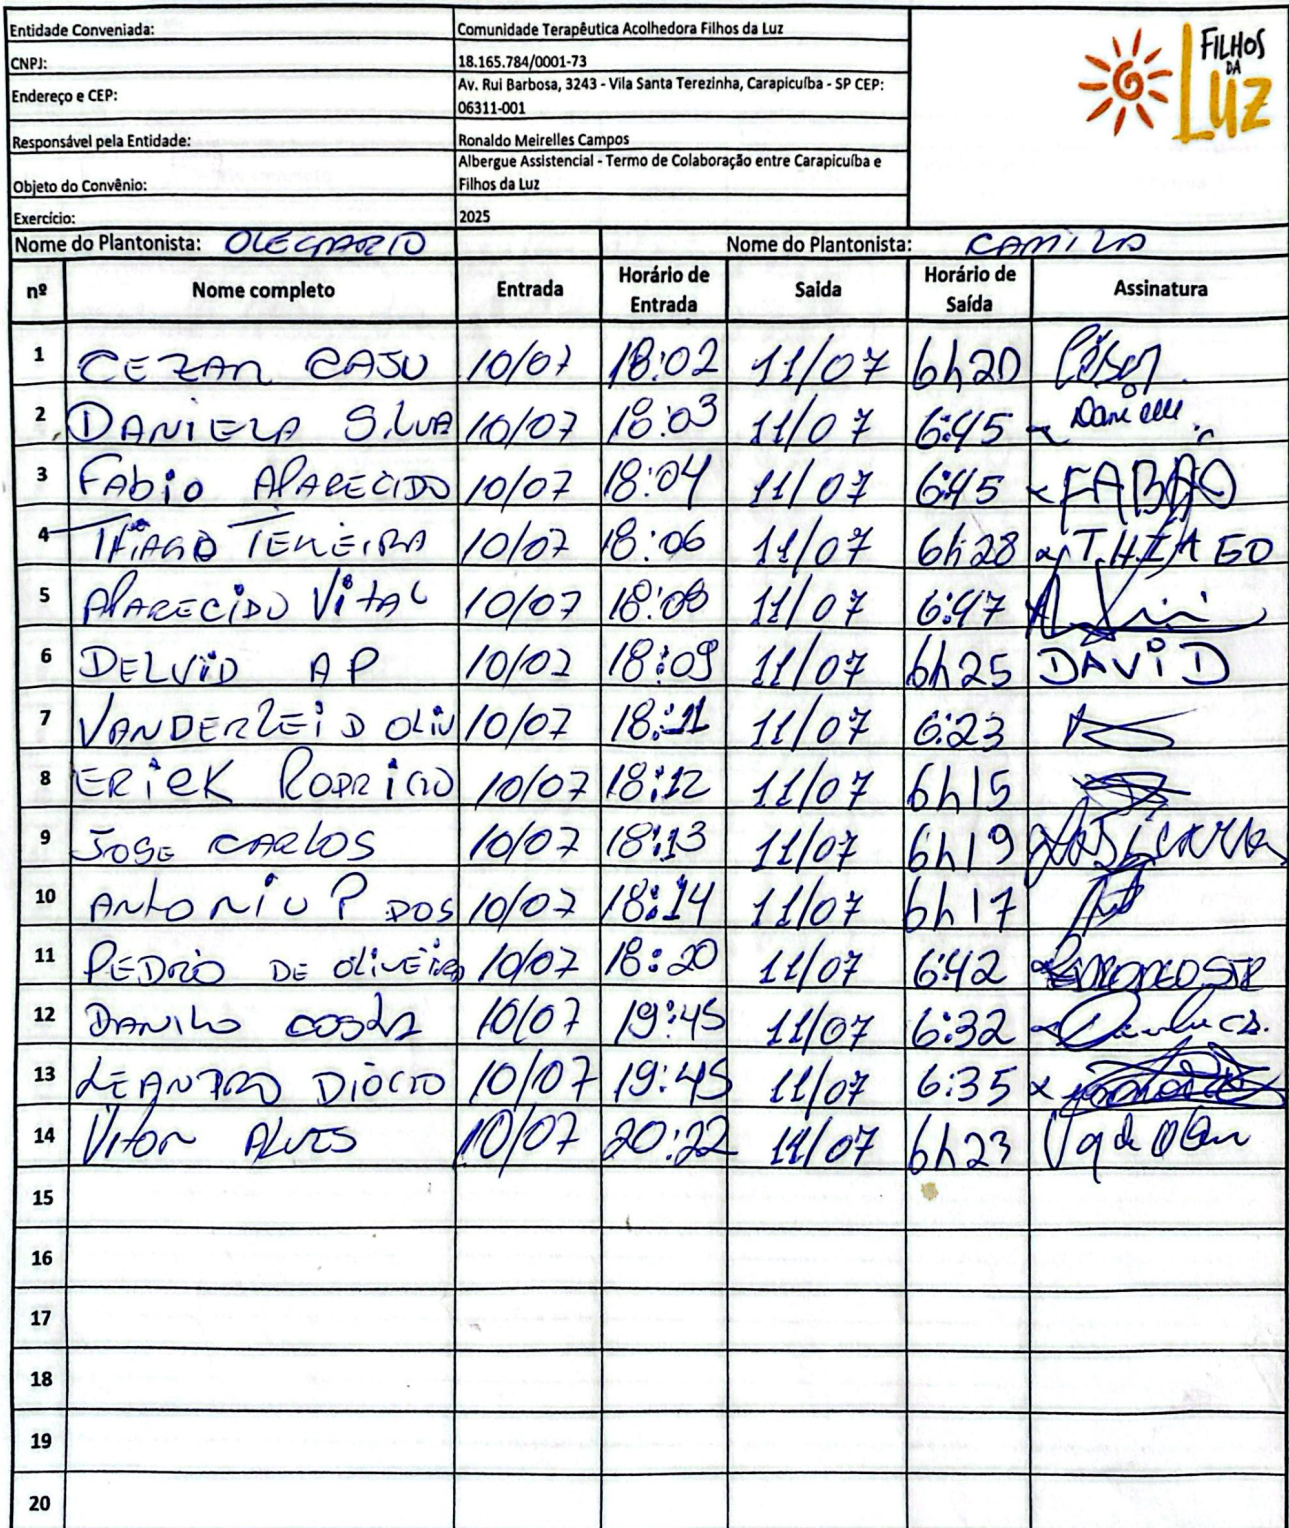 Entidade Conveniada: Comunidade Terapêutica Acolhedora Filhos da Luz
CNPJ: 18.165.784/0001-73
Endereço e CEP: Av. Rui Barbosa, 3243 - Vila Santa Terezinha, Carapicuíba - SP CEP:
06311-001
Responsável pela Entidade: Ronaldo Meirelles Campos
Objeto do Convênio: Albergue Assistencial - Termo de Colaboração entre Carapicuíba e
Filhos da Luz
Exercício: 2025
FILHOS
DA
LUZ
Nome do Plantonista: OLEGARIO Nome do Plantonista: CAMILA
nº Nome completo Entrada Horário de Entrada Saida Horário de Saída Assinatura
1 CEZAR CAJU 10/07 18:02 11/07 6h20
2 DANIELA SILVA 10/07 18:03 11/07 6:45
3 FABIO APARECIDO 10/07 18:04 11/07 6:45 FABAO
4 THIAGO TEXEIRA 10/07 18:06 11/07 6h28 THIAGO
5 APARECIDO VITAL 10/07 18:08 11/07 6:47
6 DELVID AP 10/07 18:09 11/07 6h25 DAVID
7 VANDERLEI D OLIV 10/07 18:11 11/07 6:23
8 ERICK RODRIGO 10/07 18:12 11/07 6h15
9 JOSE CARLOS 10/07 18:13 11/07 6h19
10 ANTONIO P DOS 10/07 18:14 11/07 6h17
11 PEDRO DE OLIVEIRA 10/07 18:20 11/07 6:42
12 DANILO COSTA 10/07 19:45 11/07 6:32
13 LEANDRO DIOGO 10/07 19:45 11/07 6:35
14 VITOR ALVES 10/07 20:22 11/07 6h23
15
16
17
18
19
20